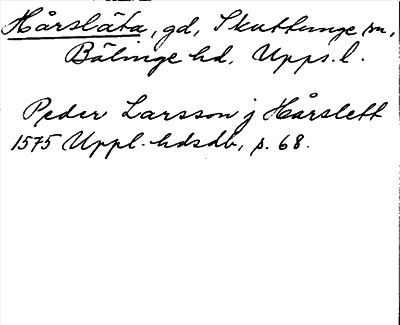 Hårsläta, gd, Skuttunge sn,
Bälinge hd, Upps. l.
Peder Larsson j Hårslett
1575 Uppl. hdsdb, s. 68.